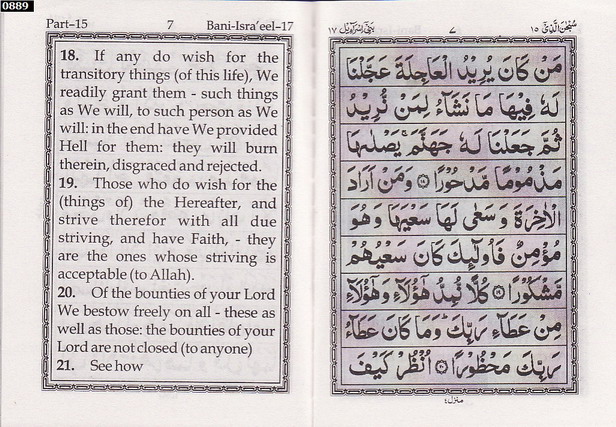 0889
Part-15 7 Bani-Isra'eel-17
18. If any do wish for the
transitory things (of this life), We
readily grant them - such things
as We will, to such person as We
will: in the end have We provided
Hell for them: they will burn
therein, disgraced and rejected.
19. Those who do wish for the
(things of) the Hereafter, and
strive therefor with all due
striving, and have Faith, - they
are the ones whose striving is
acceptable (to Allah).
20. Of the bounties of your Lord
We bestow freely on all - these as
well as those: the bounties of your
Lord are not closed (to anyone)
21. See how
سُبْحٰنَ الَّذِیْۤ ١٥ ٧ بَنِیْۤ اِسْرَآءِیْل ١٧
مَنْ كَانَ يُرِيْدُ الْعَاجِلَةَ عَجَّلْنَا
لَهٗ فِيْهَا مَا نَشَآءُ لِمَنْ نُّرِيْدُ
ثُمَّ جَعَلْنَا لَهٗ جَهَنَّمَ ۚ يَصْلٰىهَا
مَذْمُوْمًا مَّدْحُوْرًا ۝١٨ وَمَنْ اَرَادَ
الْاٰخِرَةَ وَسَعٰى لَهَا سَعْيَهَا وَهُوَ
مُؤْمِنٌ فَاُولٰٓئِكَ كَانَ سَعْيُهُمْ
مَّشْكُوْرًا ۝١٩ كُلًّا نُّمِدُّ هٰٓؤُلَآءِ وَهٰٓؤُلَآءِ
مِنْ عَطَآءِ رَبِّكَ ؕ وَمَا كَانَ عَطَآءُ
رَبِّكَ مَحْظُوْرًا ۝٢٠ اُنْظُرْ كَيْفَ
منزل ٤